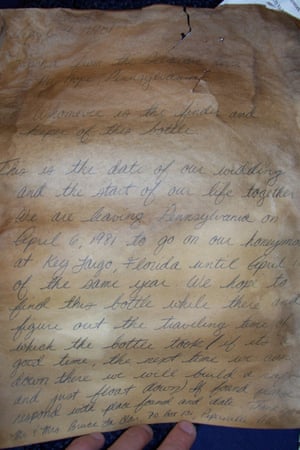 from the Delaware River
Hope Pennsylvania
Whomever is the finder and
keeper of this bottle
This is the date of our wedding
and the start of our life together
We are leaving Pennsylvania on
April 6, 1981 to go on our honeymoo
at Key Largo, Florida until April
of the same year. We hope to
find this bottle while there and
figure out the traveling time of
which the bottle took! If its
good time, the next time we come
down there we will build a
and just float down! If found please
respond with place found and date
Mr & Mrs Bruce